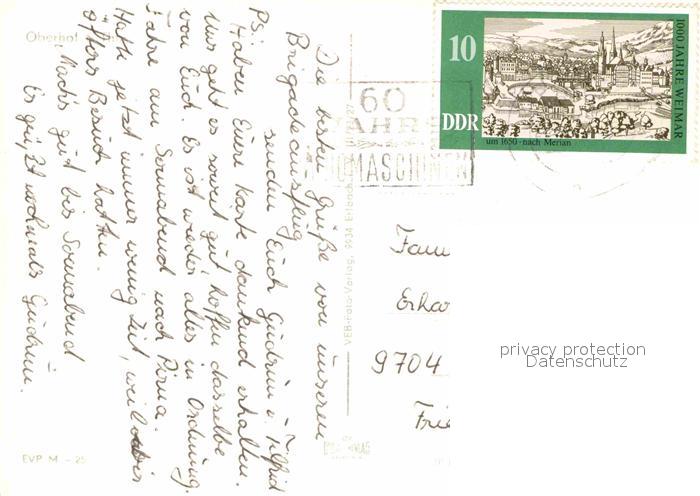 Oberhof
Die besten Grüße von unseren
Brigadeausflug
senden Euch Gudrun u. Tilfrid
PS:
Haben Eure Karte dankend erhalten.
Uns geht es soweit gut hoffen dasselbe
von Euch. Es ist wieder alles in Ordnung.
Fahre am Sonnabend nach Pirna.
Hatte jetzt immer wenig Zeit, weil wir
öfters Besuch hatten.
Macht's gut bis Sonnabend
Es grüßt nochmals Gudrun.
EVP M - 25
VEB Foto-Verlag, 9934 Erlbach
60
JAHRE
MASCHINEN
10
DDR
1000 JAHRE WEIMAR
um 1650 · nach Merian
Fam
Erha
9704
Frie
privacy protection
Datenschutz